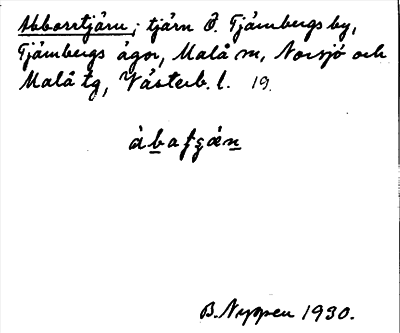 Abborrtjärn; tjärn Ö. Tjärnbergs by,
Tjärnbergs ägor, Malå sn, Norsjö och
Malå tg, Västerb. l. 19
B. Nyppen 1930.